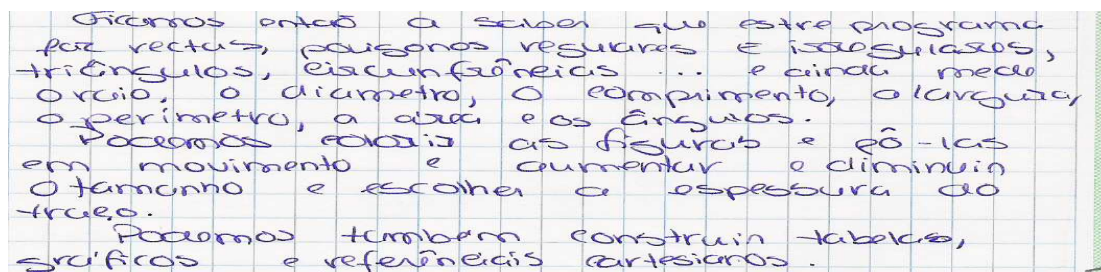 Ficamos então a saber que estre programa
faz rectas, poligonos regulares e irregulares,
triângulos, circunferências ... e ainda mede
o raio, o diametro, o comprimento, a largura,
o perimetro, a area e os ângulos.
Podemos colorir as figuras e pô-las
em movimento e aumentar e diminuir
o tamanho e escolher a espessura do
traço.
Podemos tambem construir tabelas,
gráficos e referênciais cartesianos.